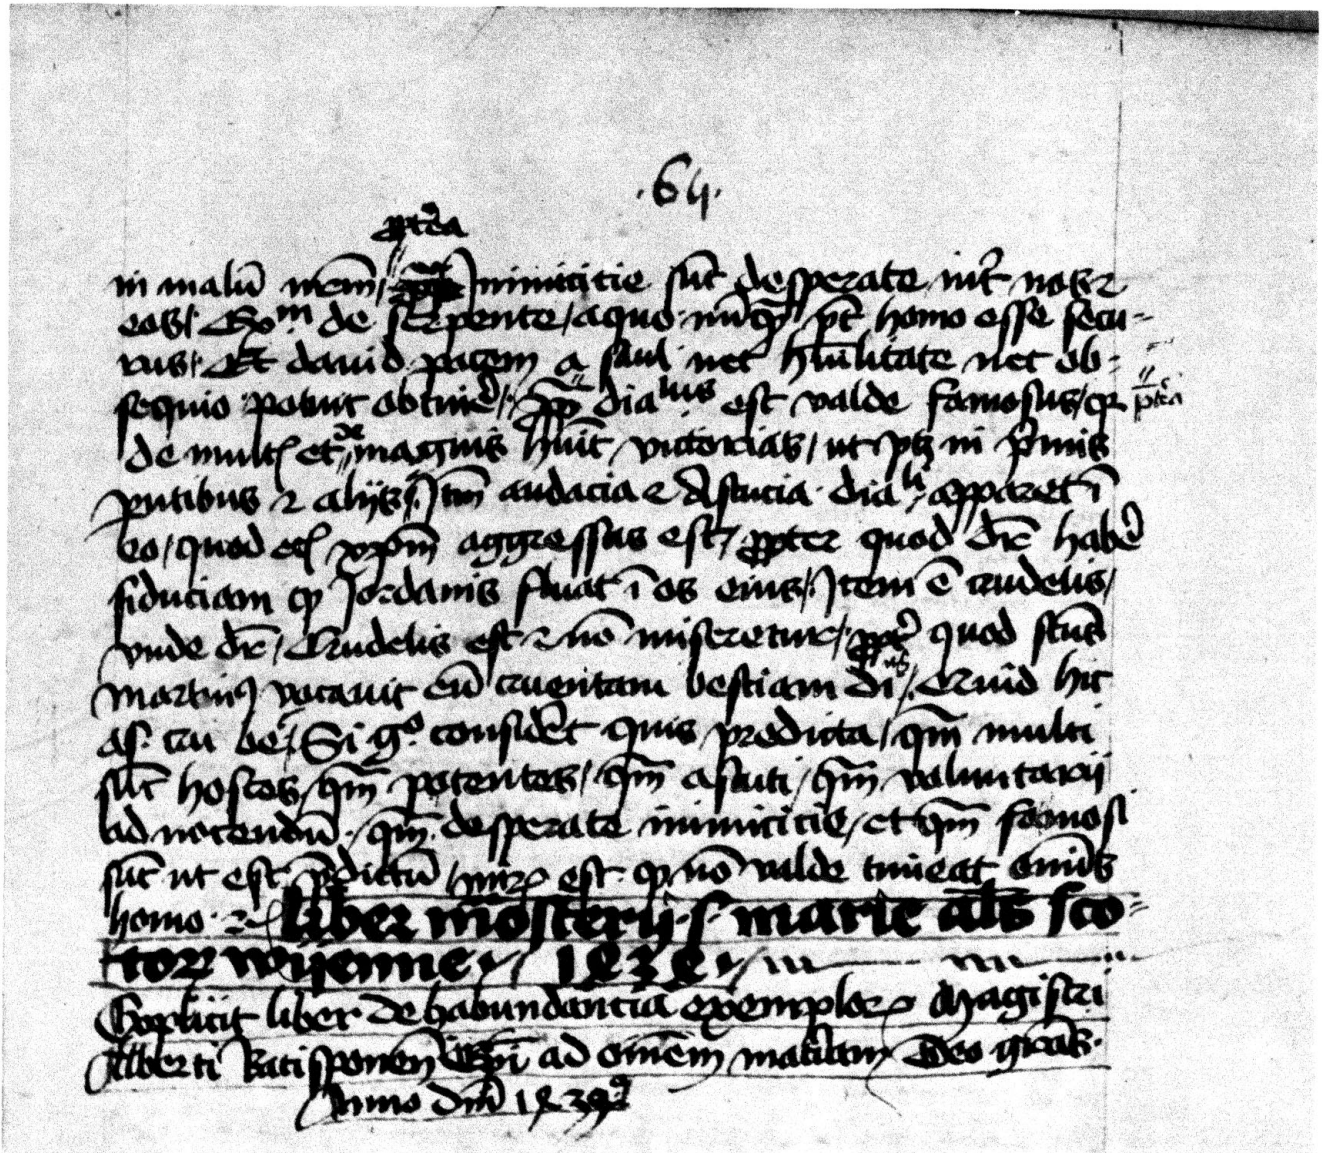 .64.
p̄terea
in malū nr̄m / Inimicitie sūt desperate int̾ nos ⁊
eos / Ex̊m de serpente / a quo nūqꝫ pt̄ homo esse secu=
rus / Et dauid pacem a saul nec hūilitate nec ob=
sequio potuit obtiner̄ / dialus est valde famosus / qꝛ
p̄terea
de mult et de magnis hūit victorias / ut ptꝫ in p̄mis
pn̄tibus ⁊ alijs / Itm̄ audacia ⁊ astucia diali apparet ī
eo / quod xp̄m aggressus est / ꝓpter quod dr̄ haber̄
fiduciam ꝙ Jordanis fluat ī os eius / Item ē crudelis /
vnde dr̄ / Crudelis est ⁊ nō miseretur / ꝓpt̾ quod sanctus
martinꝰ vocauit eū cruentam bestiam / Quid hic
as. cru be. / Si gͦ considet quis predicta / qm̄ multi
sūt hostes / qm̄ potentes / qm̄ astuti / qm̄ voluntarij
ad nocendū / qm̄ desperate inimicitie / et qm̄ famosi
sūt ut est p̄dictū / mirꝝ est ꝙ nō valde timeat omīs
homo ⁊c̄ liber mōsterij s. marie al̄s sco=
toꝝ wijenne 1434
Explicit liber de habundancia exemploꝝ Magistri
Alberti Ratisponen̄ Ep̄i ad omnem materiam Deo gracias
Anno dn̄i 1439